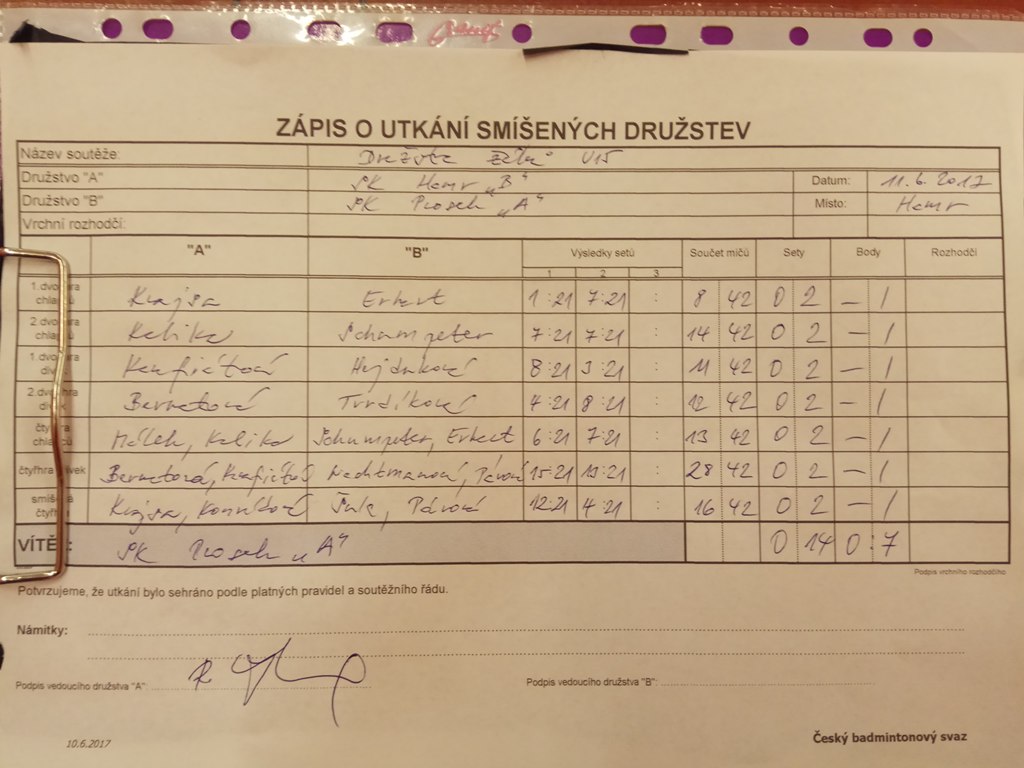 ZÁPIS O UTKÁNÍ SMÍŠENÝCH DRUŽSTEV
Název soutěže: Družstva U15
Družstvo "A" SK Hamr „B“ Datum: 11.6.2017
Družstvo "B" SK Prosek „A“ Místo: Hamr
Vrchní rozhodčí:
"A" "B" Výsledky setů Součet míčů Sety Body Rozhodčí
1 2 3
1.dvouhra chlapců Krajsa Erhart 1:21 7:21 : 8 42 0 2 – 1
2.dvouhra chlapců Kalika Schumpeter 7:21 7:21 : 14 42 0 2 – 1
1.dvouhra dívek Hujduková 8:21 3:21 : 11 42 0 2 – 1
2.dvouhra dívek Bernetová Tvrdíková 4:21 8:21 : 12 42 0 2 – 1
čtyřhra chlapců Málek, Kalika Schumpeter, Erhart 6:21 7:21 : 13 42 0 2 – 1
čtyřhra dívek Bernetová, Nachtmanová, Párová 15:21 13:21 28 42 0 2 – 1
smíšená čtyřhra Krajsa, Párová 12:21 4:21 : 16 42 0 2 – 1
VÍTĚZ: SK Prosek „A“ 0 14 0:7
Podpis vrchního rozhodčího
Potvrzujeme, že utkání bylo sehráno podle platných pravidel a soutěžního řádu.
Námitky:
Podpis vedoucího družstva "A": Podpis vedoucího družstva "B":
10.6.2017 Český badmintonový svaz